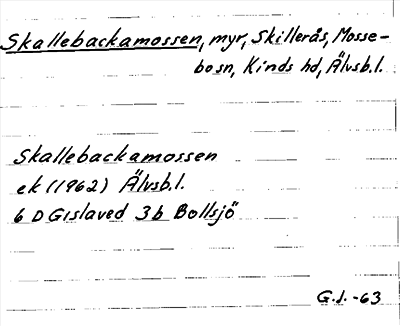 Skallebackamossen, myr, Skillerås, Mosse-
bosn, Kinds hd, Älvsb.l.
Skallebackamossen
ek (1962) Älvsb.l.
6 D Gislaved 3b Bollsjö
G.J. -63